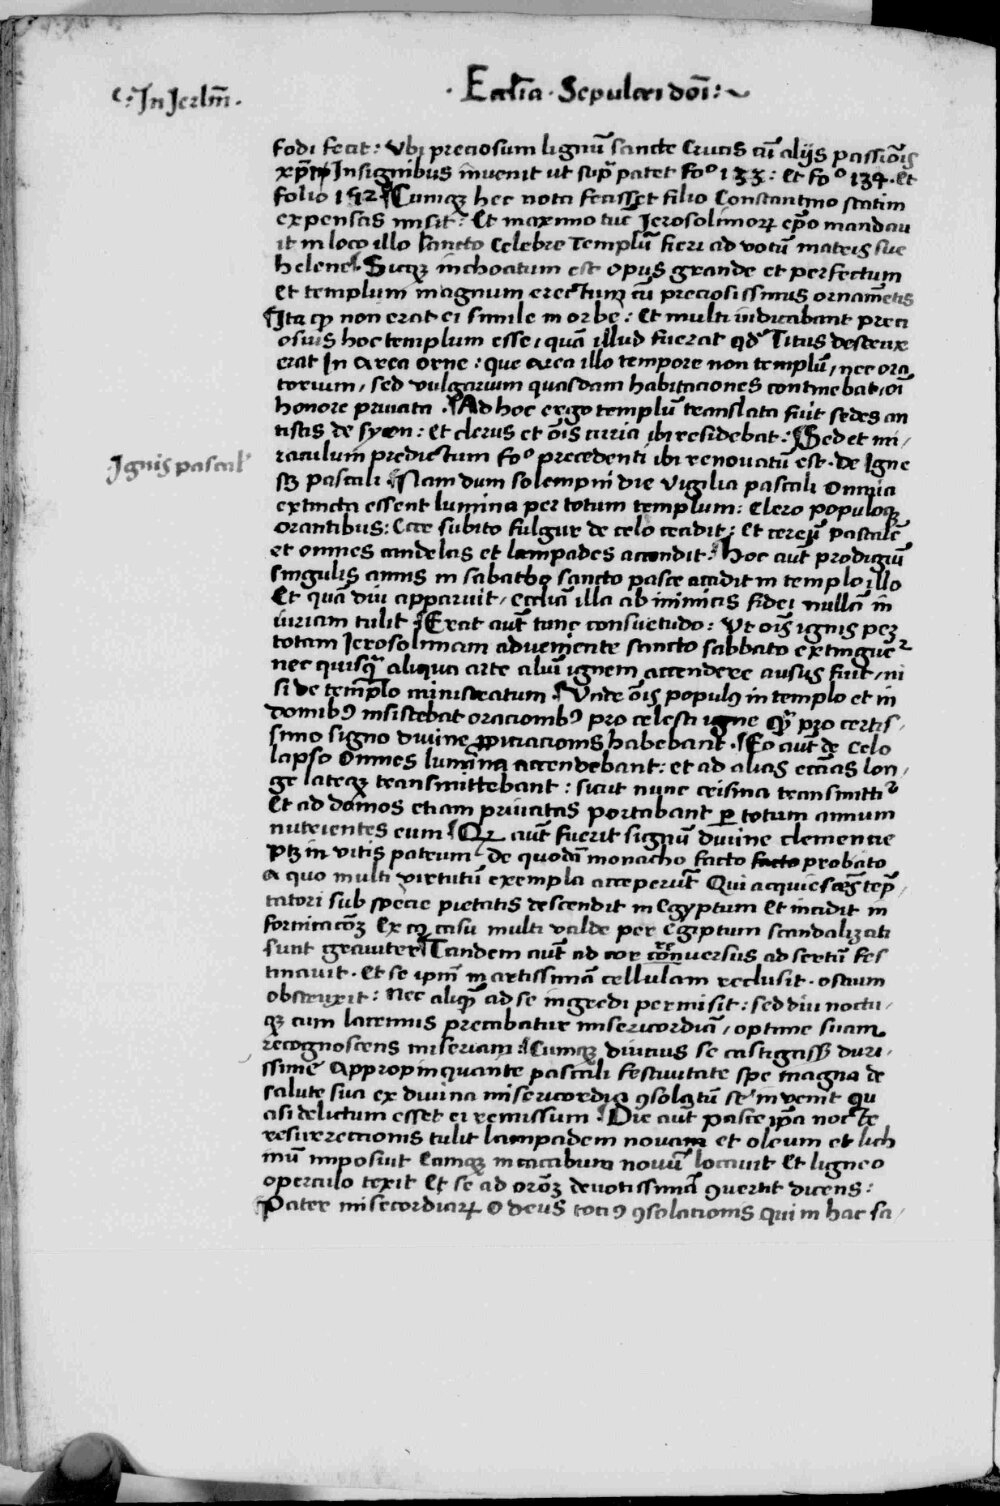 ·:In Jerlm̄.
· Eccl̄ia · Sepulcri doī: ~
fodi fecit: Ubi preciosum lignū sancte Crucis cū alijs passiōis
xp̄i Insignibus invenit ut sup̄ patet fo° 133: Et fo° 134. Et
folio 152 ¶Cumqꝫ hec nota fecisset filio Constantino statim
expensas misit: Et maximo tūc Jerosolimoꝝ ep̄o mandau
it in loco illo sancto Celebre Templū fieri ad votū matris sue
helene ¶Sicqꝫ inchoatum est opus grande et perfectum
Et templum magnum erectum cū preciosissimis ornam̄etis
¶Ita qꝫ non erat ei simile in orbe: Et multi iudicabant preci
osius hoc templum esse, quā illud fuerat qd̄ Titus destrux
erat In Area orne: que Area illo tempore non templū, nec ora
torium, sed vulgarium quasdam habitaciones continebat, oī
honore privata. ¶Ad hoc ergo templū translata fuit sedes an
tistis de syon: Et clerus et ōis curia ibi residebat: ¶Sed et mi,
·Ignis pascal'
raculum predictum fo° precedenti ibi renovatū est. de Igne
sꝫ pascali ¶Nam dum solempni die vigilia pascali Omnia
extincta essent lumina per totum templum: Clero populoqꝫ
orantibus: Ecce subito fulgur de celo cecidit: Et cereū pascalē
et omnes candelas et lampades accendit: ¶hoc aut̄ prodigiū
singulis annis in sabatho sancto pasce accidit in templo illo
Et quā diu apparuit, eccliā illa ab inimicis fidei nullā in
iuriam tulit ¶Erat aut̄ tunc consuetudo: Ut ōis ignis peꝫ
totam Jerosolimam adveniente sancto sabbato extinguer̄
nec quisqꝫ aliqua arte aliū ignem accendere ausus fuit, ni
si de templo ministratum. ¶Unde ōis populꝰ in templo et in
domibꝰ insistebat oracionibꝰ pro celesti igne qꝫ pro certis,
simo signo divine ꝓpiciacionis habebant. ¶Eo aut̄ de Celo
lapso Omnes lumina accendebant: et ad alias ecc̄ias lon,
ge lateqꝫ transmittebant: sicut nunc crisma transmitti᷑
Et ad domos etiam privatas portabant ꝑ totum annum
nutrientes eum ¶Qꝫ aut̄ fuerit signū divine clemencie
ptꝫ in vitis patrum, de quodā monacho facto facto probato
A quo multi virtutū exempla acceperūt Qui acquiescēs tep̄,
tatori sub specie pietatis descendit in Egyptum Et incidit in
fornicacōꝫ Ex cꝫ casu multi valde per Egiptum scandalizati
sunt graviter ¶Tandem aut̄ ad cor conversus ad sertū fes
tinavit. Et se ipm̄ in artissimā cellulam reclusit. ostium
obstruxit: Nec aliqꝫ ad se ingredi permisit: sed diu noctu,
qꝫ cum lacrimis precabatur misericordiā, optime suam
recognoscens miseriam: ¶Cumqꝫ diucius se castigass; duri,
ssime Appropinquante pascali festivitate spe magna de
salute sua ex divina misericordia ꝯsolatū se invenit qu
asi delictum esset ei remissum ¶Die aut̄ pasce ip̄a nocte
resurrectionis tulit lampadem novam et oleum et lich
inū imposuit Eamqꝫ in cacabum novū locavit Et ligneo
operculo texit Et se ad orōꝫ devotissimā ꝯvertit dicens:
¶Pater misecordiarꝫ O deus totiꝰ ꝯsolationis qui in hac sa,